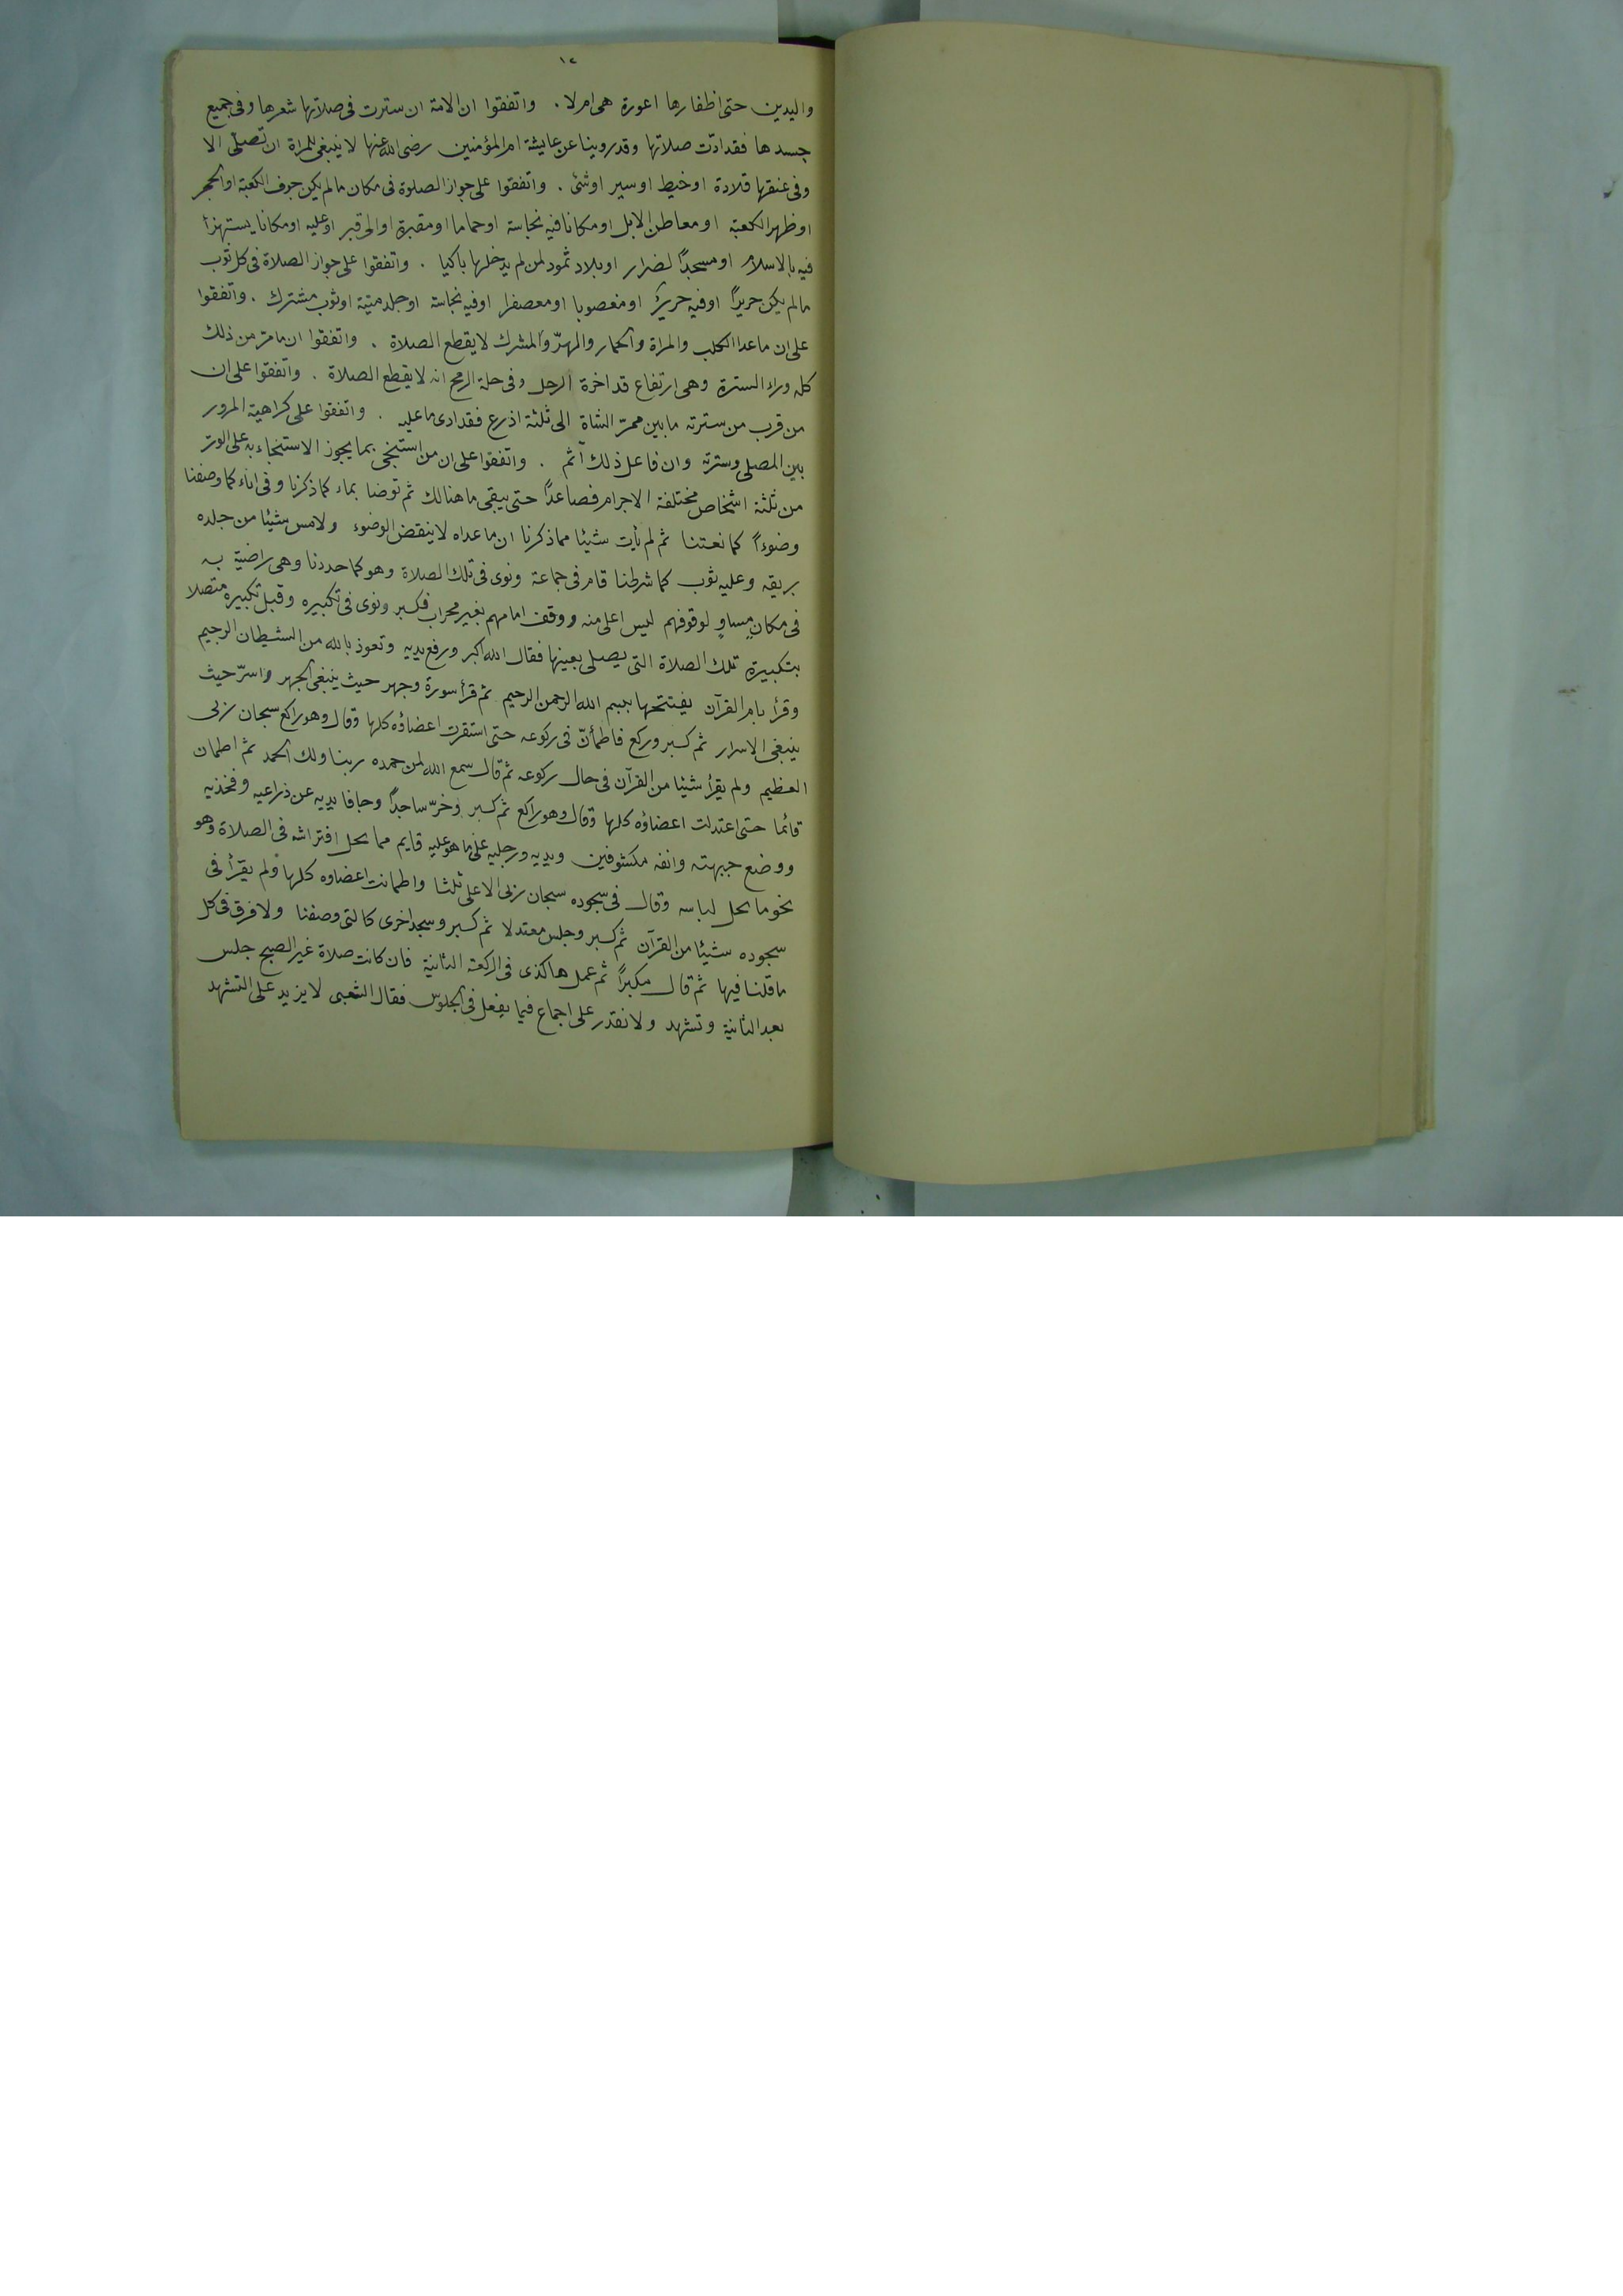 ١٢
واليدين حتى اظفارها اعورة هى ام لا . واتفقوا ان الامة ان سترت فى صلاتها شعرها وفى جميع
جسدها فقد ادّت صلاتها وقد روينا عن عايشة ام المؤمنين رضى الله عنها لا ينبغى للمراة ان تصلى الا
وفى عنقها قلادة او خيط او سير او شئ . واتفقوا على جواز الصلوة فى مكان مالم يكن جوف الكعبة او الحجر
او ظهر الكعبة او معاطن الابل او مكانا فيه نجاسة او حماما او مقبرة او الى قبر او عليه او مكانا يستهزأ
فيه بالاسلام او مسجدًا لضرار او بلاد ثمود لمن لم يدخلها باكيا . واتفقوا على جواز الصلاة فى كل ثوب
مالم يكن حريرًا او فيه حريرٌ او مغصوبا او معصفرا او فيه نجاسة او جلد ميتة او ثوب مشترك . واتفقوا
على ان ماعدا الكلب والمراة والحمار والهرّ والمشرك لا يقطع الصلاة . واتفقوا ان مامرّ من ذلك
كله وراء السترة وهى ارتفاع قد اخرة الرحل وفى حلة الرمح انه لا يقطع الصلاة . واتفقوا على ان
من قرب من سترته مابين ممرّ الشاة الى ثلثة اذرع فقد ادى ما عليه . واتفقوا على كراهية المرور
بين المصلى وسترته وان فاعل ذلك آثم . واتفقوا على ان من استنجى بما يجوز الاستنجاء به على الوتر
من ثلثة اشخاص مختلفة الاجرام فصاعدًا حتى يبقى ما هنالك ثم توضا بماء كما ذكرنا وفى اناء كما وصفنا
وضوءًا كما نعتنا ثم لم يأت شيئا مما ذكرنا ان ماعداه لا ينقض الوضوء ولا مس شيئا من جلده
بريقه وعليه ثوب كما شرطنا قام فى جماعة ونوى فى تلك الصلاة وهو كما حددنا وهى راضية به
فى مكانٍ مساوٍ لوقوفهم ليس اعلى منه ووقف امامهم بغير محراب فكبر ونوى فى تكبيره وقبل تكبيره متصلا
بتكبيرة تلك الصلاة التى يصلى بعينها فقال الله اكبر ورفع يديه وتعوذ بالله من الشيطان الرجيم
وقرأ بام القرآن يفتتحها ببسم الله الرحمن الرحيم ثم قرأ سورة وجهر حيث ينبغى الجهر واسرّ حيث
ينبغى الاسرار ثم كبر وركع فاطمأنّ فى ركوعه حتى استقرت اعضاؤه كلها وقال وهو راكع سبحان ربى
العظيم ولم يقرأ شيئا من القرآن فى حال ركوعه ثم قال سمع الله لمن حمده ربنا ولك الحمد ثم اطمان
قائما حتى اعتدلت اعضاؤه كلها وقال وهو راكع ثم كبر وخرّ ساجدًا وجافا يديه عن ذراعيه وفخذيه
ووضع جبهته وانفه مكشوفين ويديه ورجليه على ما هو عليه قايم مما يحل افتراشه فى الصلاة وهو
نحو ما يحل لباسه وقال فى سجوده سبحان ربى الاعلى ثلثا واطمانت اعضاوه كلها ولم يقرأ فى
سجوده شيئا من القرآن ثم كبر وجلس معتدلا ثم كبر وسجد اخرى كالتى وصفنا ولا فرق فى كل
ما قلنا فيها ثم قال مكبرًا ثم عمل هاكذى فى الركعة الثانية فان كانت صلاة غير الصبح جلس
بعد الثانية وتشهد ولا نقدر على اجماع فيما يفعل فى الجلوس فقال الشعبى لا يزيد على التشهد